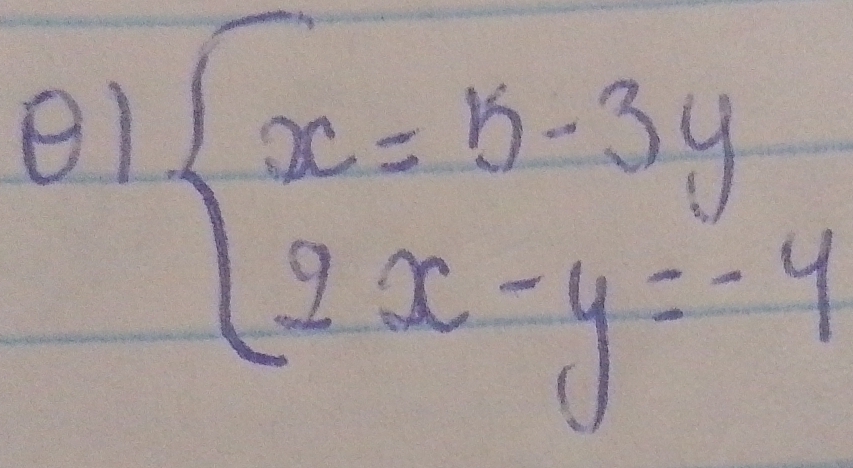 θ) { x = 5 - 3y
2x - y = - 4